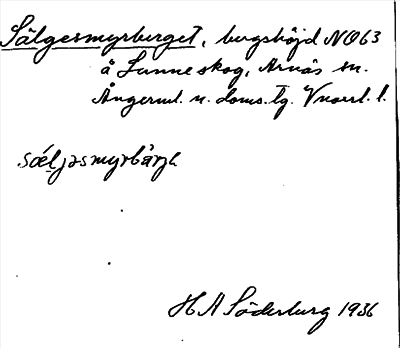 Sälgesmyrberget, bergshöjd NO63
å Sunneskog, Arnäs sn.
Ångerml. n. doms. tg. Vnorrl. l.
sæljəsmyrbärjə
H A Söderburg 1936